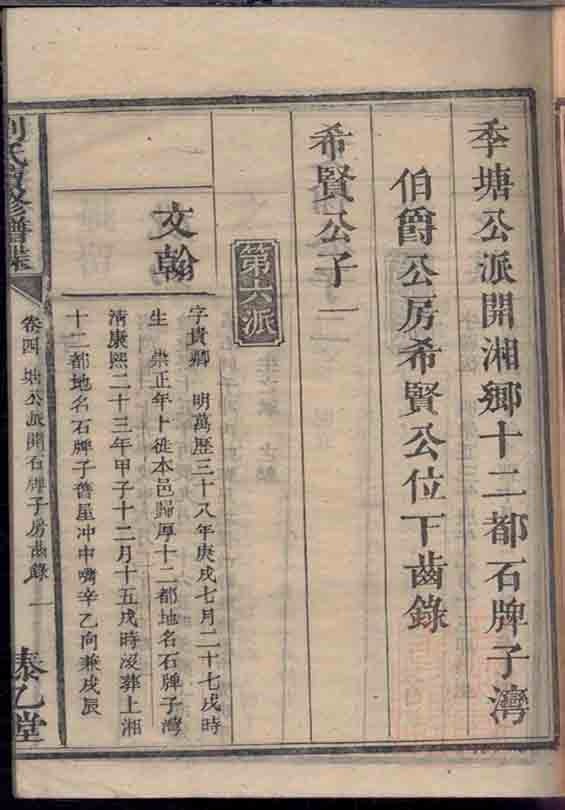 季塘公派開湘鄉十二都石牌子灣
伯爵公房希賢公位下齒錄
希賢公子一
第六派
文翰
字貴卿 明萬歷三十八年庚戌七月二十七戌時
生 崇正年卜徙本邑歸厚十二都地名石牌子灣
清康熙二十三年甲子十二月十五戌時沒葬上湘
十二都地名石牌子普星冲中嘴辛乙向兼戌辰
氏 修譜
卷四 塘公派開石牌子房齒錄 一
泰乙堂